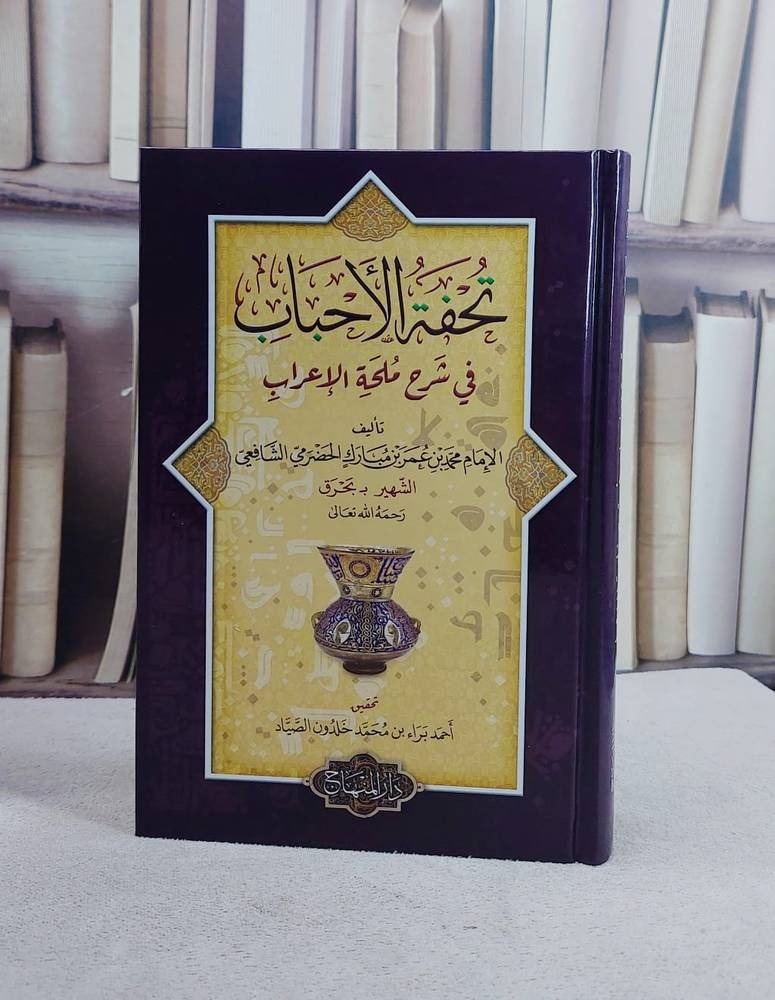 تُحْفَةُ الأَحْبَابِ
في شَرْحِ مُلْحَةِ الإعرابِ
تأليف
الإمَامِ مُحَمَّدِ بْنِ عُمَرَ بْنِ مُبَارَكٍ الحَضْرَمِيِّ الشَّافِعِيِّ
الشَّهِيرِ بـ بَحْرَق
رَحِمَهُ اللهُ تَعَالَىٰ
تحقيق
أَحمَد بَرَاء بن مُحَمَّد خَلْدُون الصَّيَّاد
دَارُ المِنْهَاج